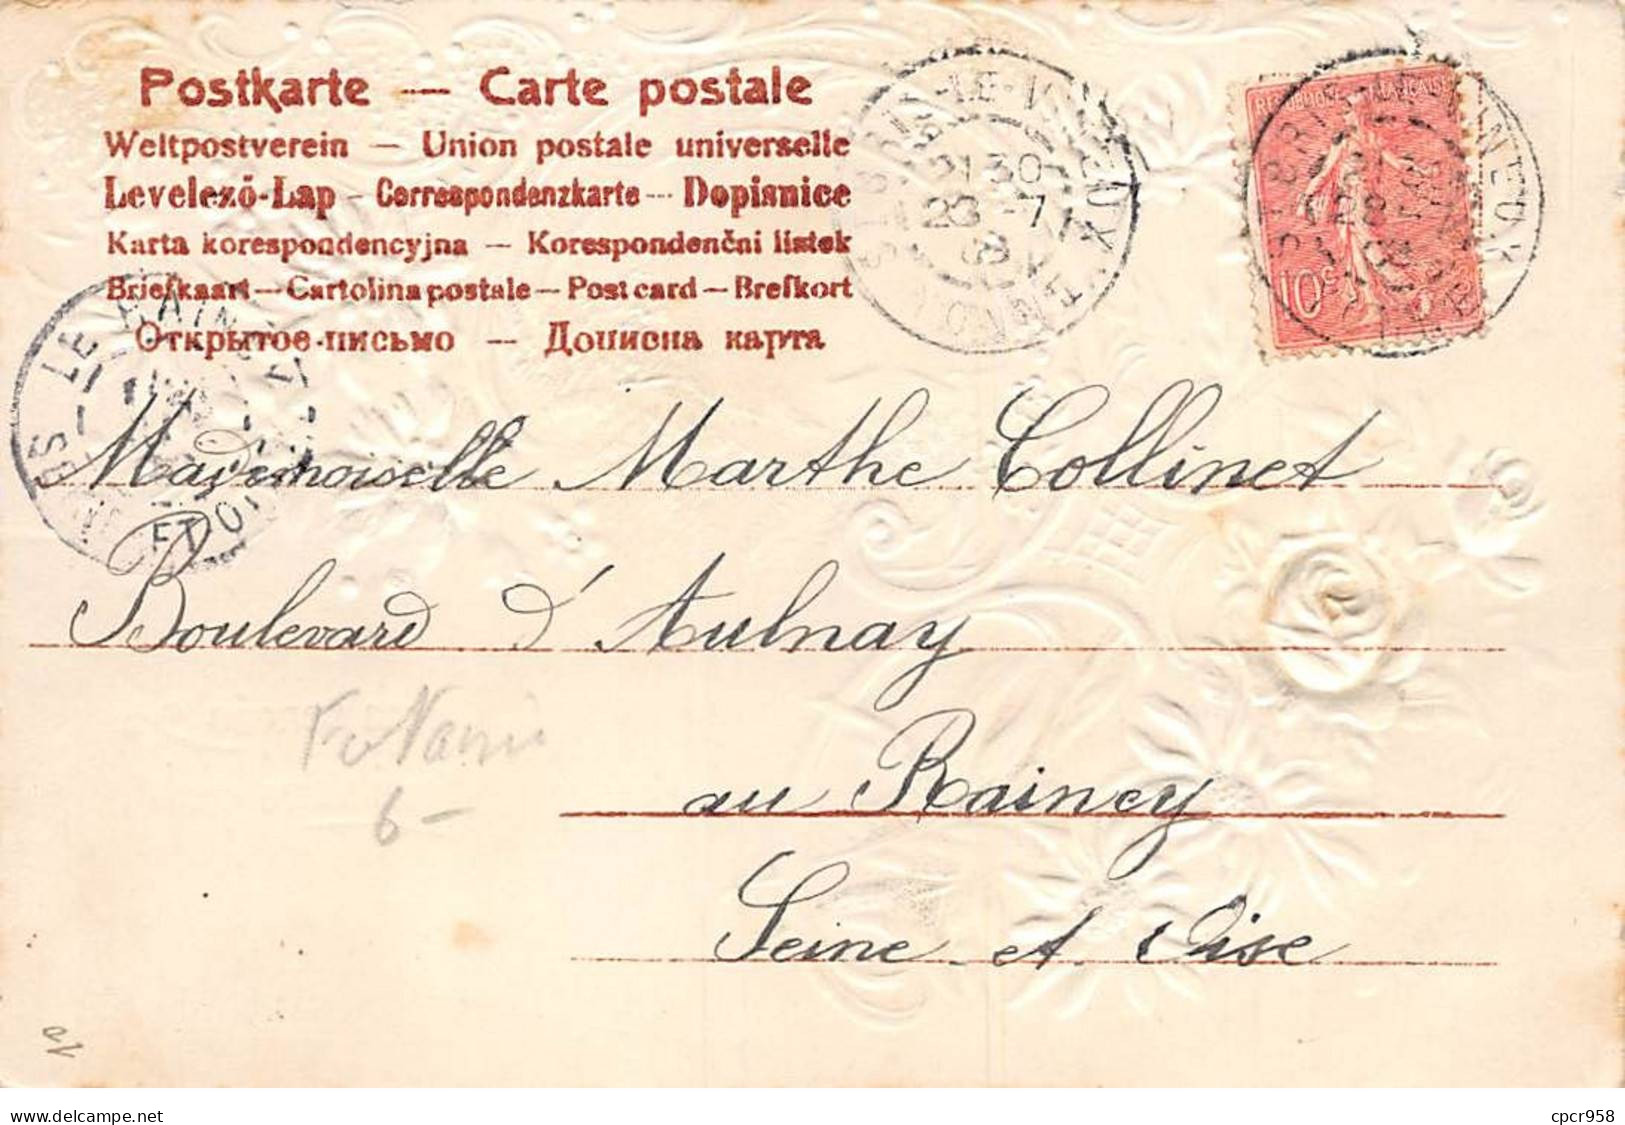 Postkarte — Carte postale
Weltpostverein — Union postale universelle
Levelező-Lap – Correspondenzkarte — Dopisnice
Karta korespondencyjna — Korespondenční lístek
Briefkaart — Cartolina postale — Post card — Brefkort
Открытое письмо — Дописна карта
ST BRIS-LE-VINEUX
YONNE
21 30
23 -7
REPUBLIQUE FRANÇAISE
10c
ST BRIS-LE-VINEUX
LE RAINCY
SEINE ET OISE
Mademoiselle Marthe Collinet
Boulevard d'Aulnay
au Raincy
Seine et Oise
6 –
cpcr958